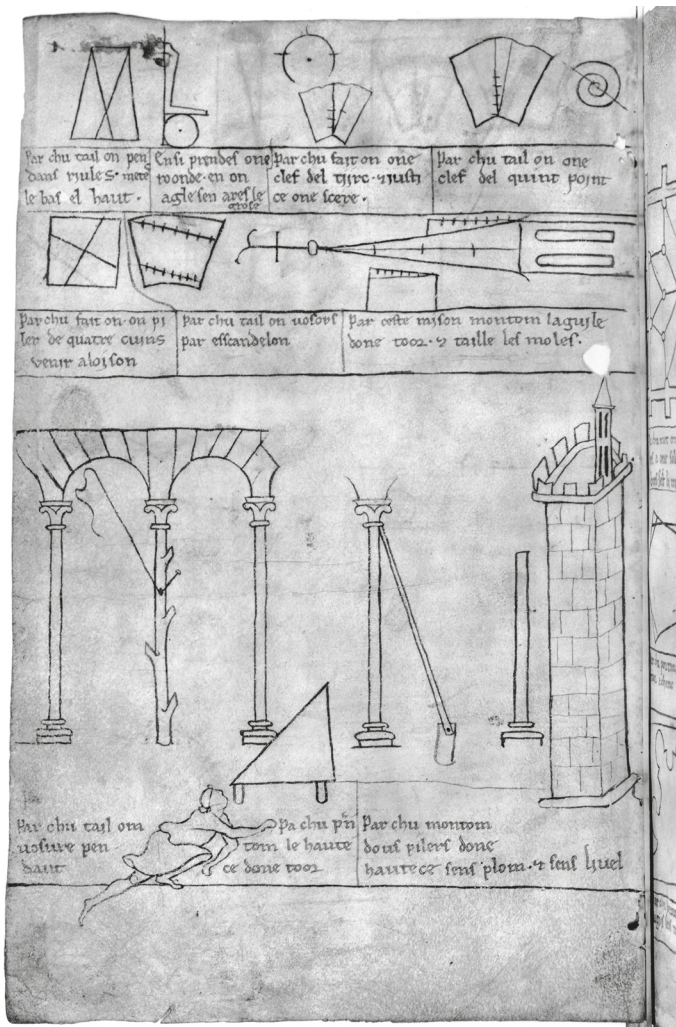 Par chu tail on pen
dans riules. mete
le bas el haut.
Ensi prendes one
roonde. en on
agle sen ares le
grose
Par chu fait on one
clef del tirc. & iusti
ce one scere.
Par chu tail on one
clef del quint point
Par chu fait on. on pi
ler de quatre cuins
venir a loison
Par chu tail on vosors
par esscandelon
Par ceste raison montom laguile
done toor. & taille les moles.
Par chu tail om
vosure pen
dant
Pa chu prn
tom le haute
ce done toor
Par chu montom
dous pilers done
hautece sens plom. & sens livel